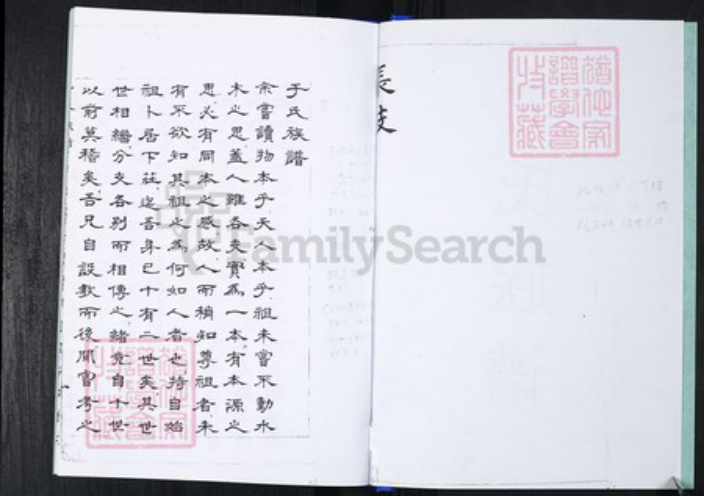 長支
于氏族譜
余嘗讀物本乎天人本乎祖未嘗不動水
木之思蓋人雖各支實為一本有本源之
思必有同本之感故人而稍知尊祖者未
有不欲知其祖之為何如人者也特自始
祖卜居下莊迄吾身已十有二世矣其世
世相繼分支各別而相傳之緒竟自十世
以前莫稽矣吾兄自設教而後閒嘗考之
猶他家
譜學會
收藏
FamilySearch